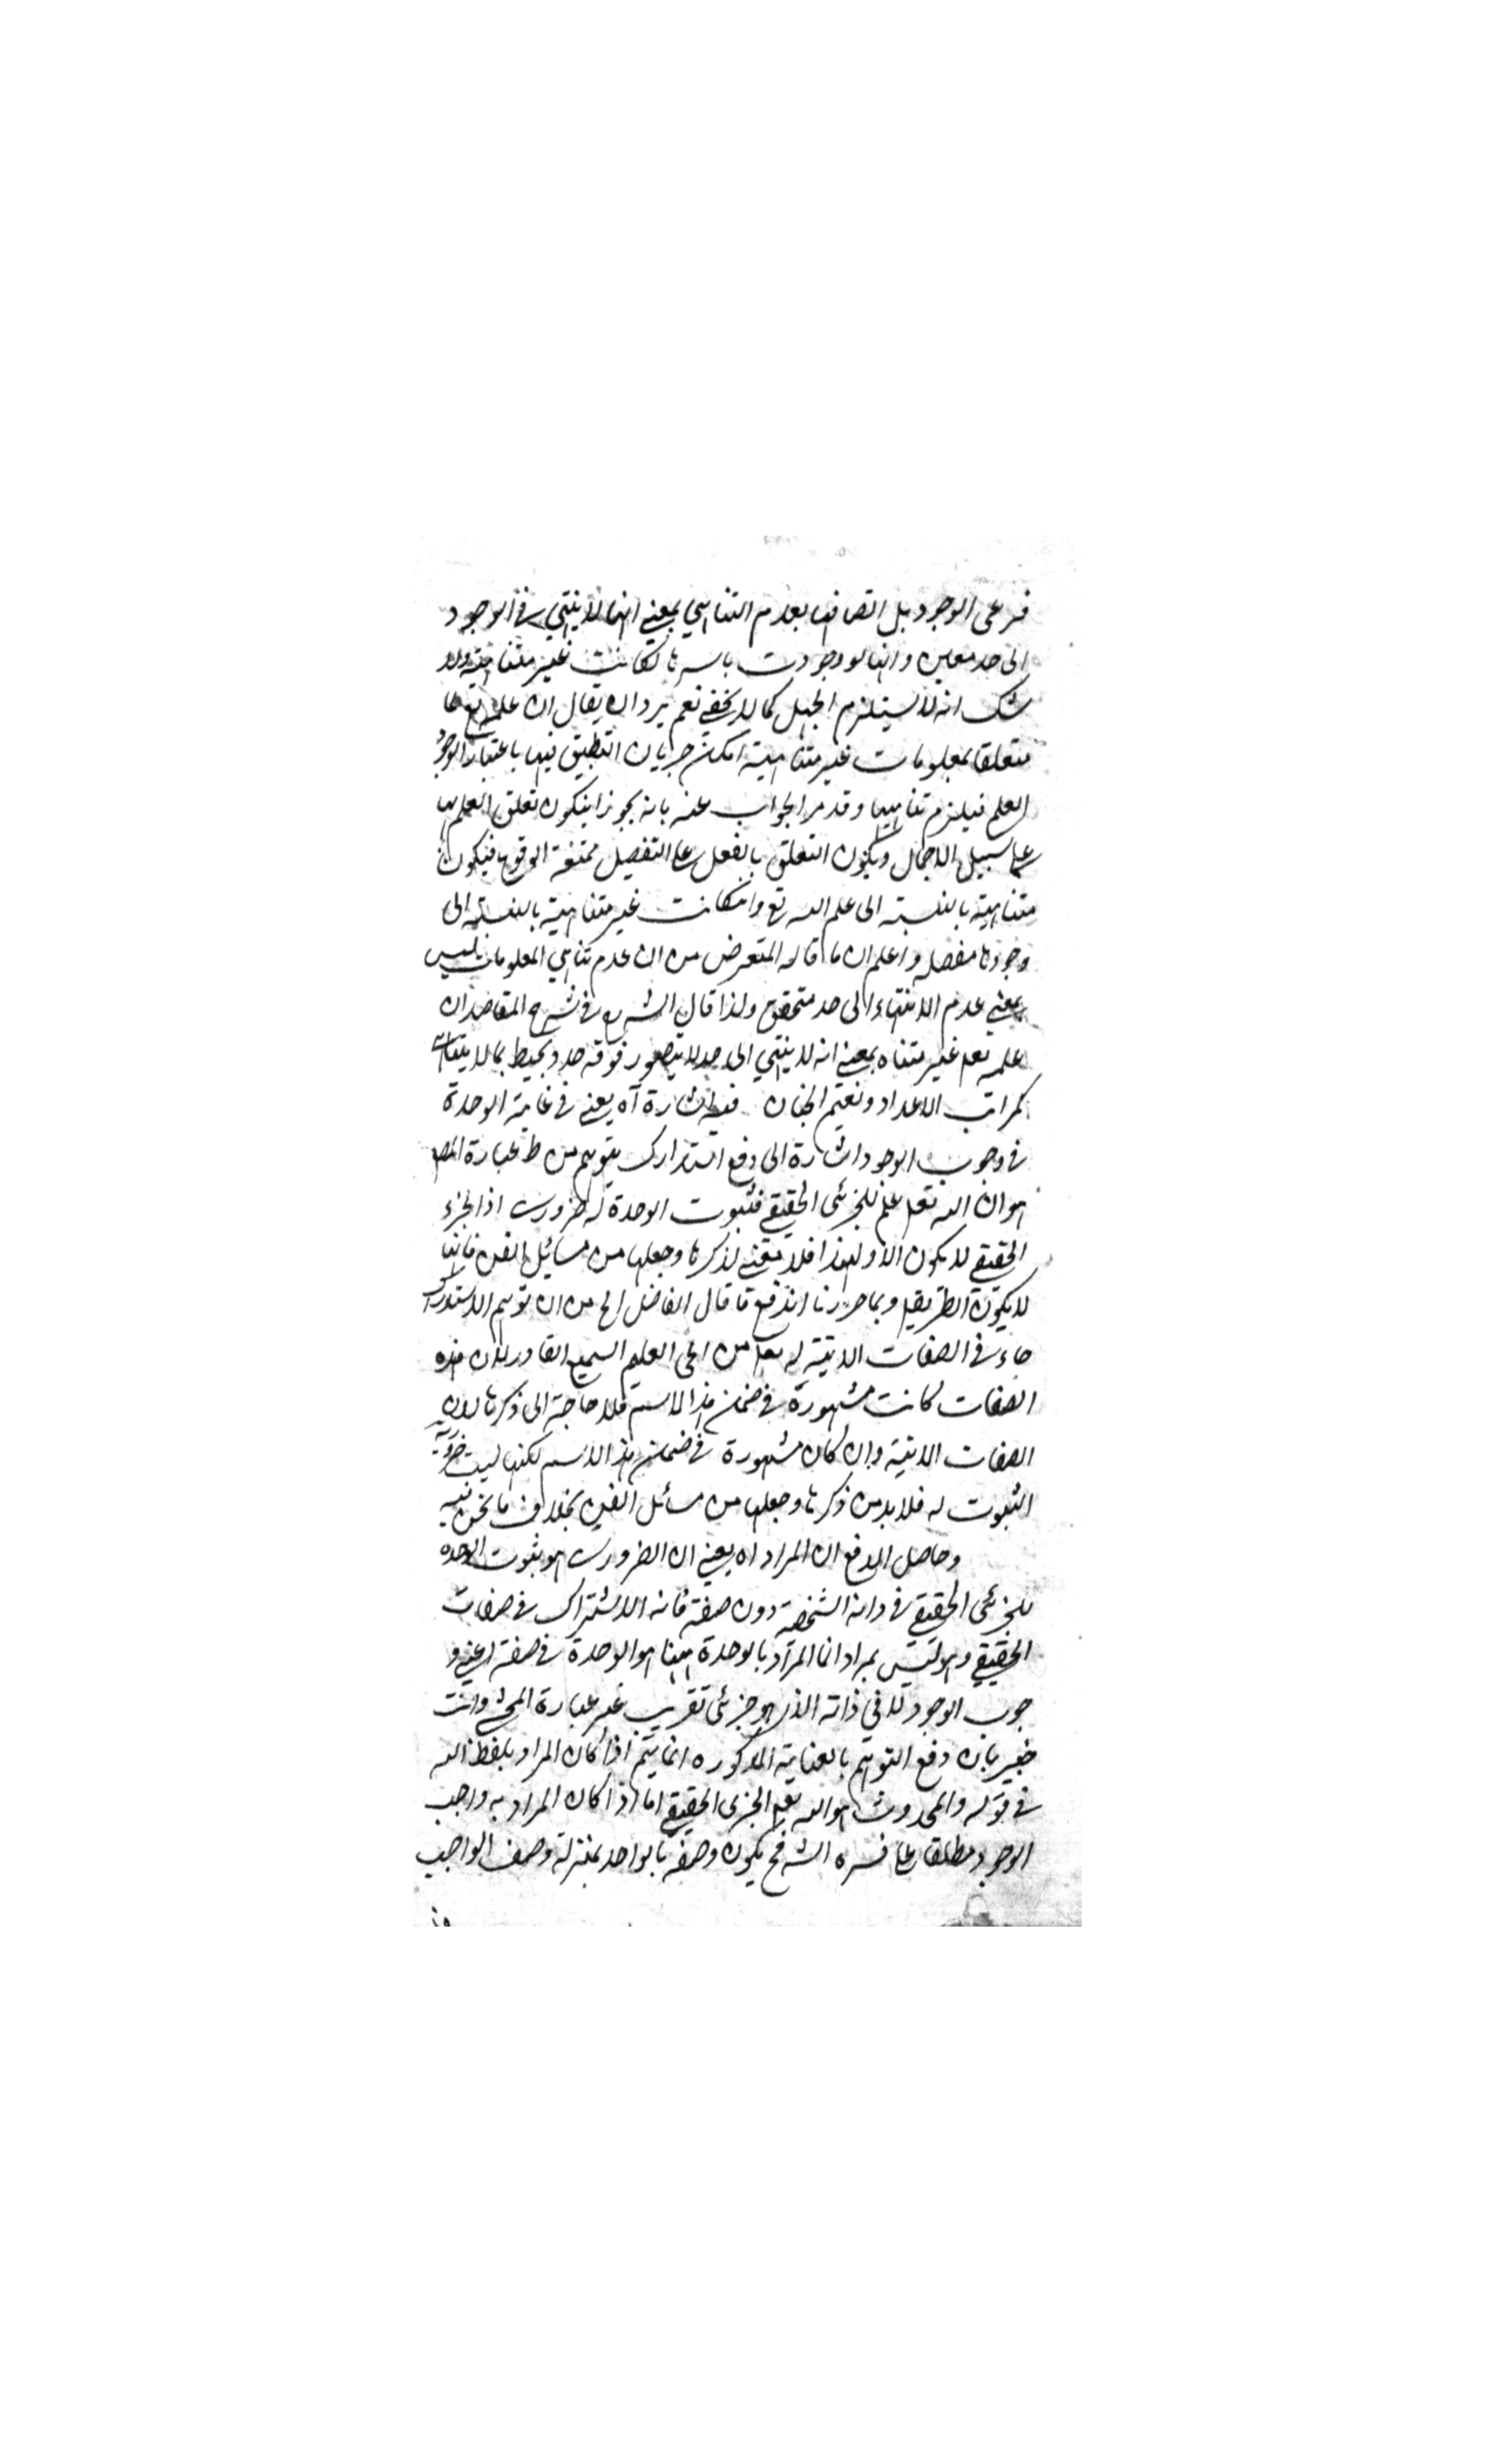 فرعى الوجود بل اتصافها بعدم التناهي بمعنى انها لا ينتهي في الوجود
الى حد معين وانها لو وجدت باسرها لكانت غير متناهية ولا
شك انه لا يستلزم الجهل كما لا يخفى نعم يرد ان يقال ان علمه تع
متعلقا بمعلومات غير متناهية امكن جريان التطبيق فيها باعتبار الوجود
العلم فيلزم تناهيها وقد مر الجواب عنه بانه يجوز ان يكون تعلق العلم بها
على سبيل الاجمال ويكون التعلق بالفعل على التفصيل ممتنعة الوقوع فيكون
متناهية بالنسبة الى علم الله تع وان كانت غير متناهية بالنسبة الى
وجودها مفصلة واعلم ان ما قاله المتعرض من ان عدم تناهي المعلومات ليس
بمعنى عدم الانتهاء الى حد متحقق ولذا قال الش في شرح المقاصد ان
علمه تع غير متناه بمعنى انه لا ينتهي الى حد لا يتصور فوقه حد ويحيط بما لا يتناهى
كمراتب الاعداد ونعيم الجنان فيه اشارة آه يعنى في غاية الوحدة
في وجوب الوجود اشارة الى دفع استدراك يتوهم من ظ عبارة المص
هو ان الله تع علم للجزئي الحقيقي فثبوت الوحدة له ضروري اذ الجزء
الحقيقي لا يكون الا ولهذا فلا معنى لذكرها وجعلها من مسائل الفن فانها
لا يكون الطريق وبما حررنا اندفع ما قال الفاضل الخ من ان توهم الاستدراك
جاء في الصفات الاتية له تع من الحي العليم السميع القادر لان هذه
الصفات كانت مشهورة في ضمن هذا الاسم فلا حاجة الى ذكرها لان
الصفات الاتية وان كان مشهورة في ضمن هذا الاسم لكنها ليست ضرورية
الثبوت له فلا بد من ذكرها وجعلها من مسائل الفن بخلاف ما نحن فيه
وحاصل الدفع ان المراد اه يعنى ان الضروري هو ثبوت الوحدة
للجزئي الحقيقي في ذاته الشخصية دون صفته فانه الاشتراك في صفات
الحقيقي وهو ليس بمراد انما المراد بالوحدة ههنا هو الوحدة في صفة اعنى و
جوب الوجود لا في ذاته الذي هو جزئي تقريب غير عبارة المحشى وانت
خبير بان دفع التوهم بالعناية المذكوره انما يتم اذا كان المراد بلفظ الله
في قوله والمحدوث هو الله تع الجزي الحقيقي اما اذا كان المراد به واجب
الوجود مطلقا على ما فسره الش فح يكون وصفه بالواحد بمنزلة وصف الواجب